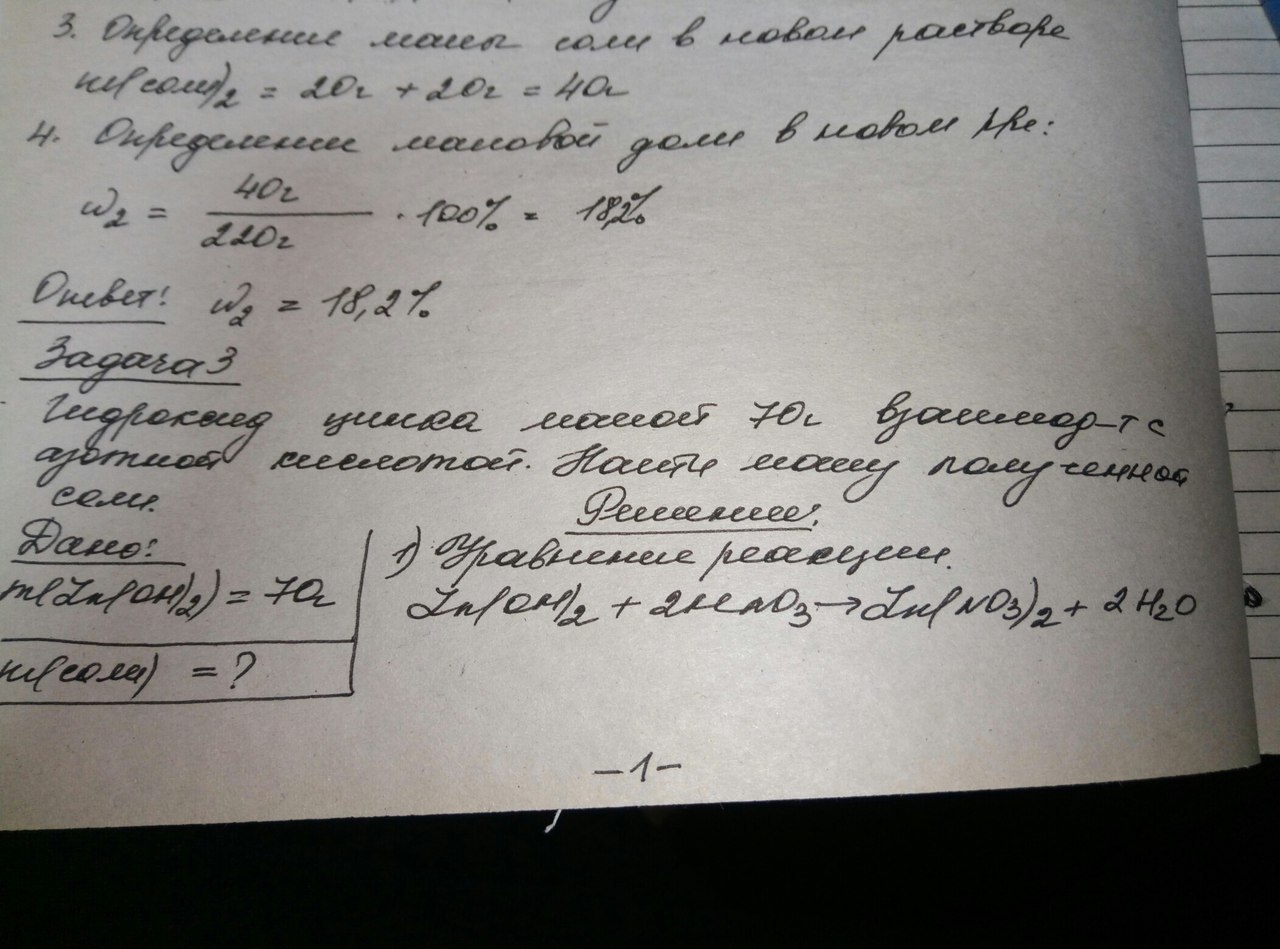 3. Определение массы соли в новом растворе
m(соли)₂ = 20г + 20г = 40г
4. Определение массовой доли в новом р-ре:
w₂ = 40г / 220г · 100% = 18,2%
Ответ: w₂ = 18,2%
Задача 3
Гидроксид цинка массой 70г взаимод-т с
азотной кислотой. Найти массу полученной
соли.
Решение:
Дано:
1) Уравнение реакции.
m(Zn(OH)₂) = 70г
Zn(OH)₂ + 2HNO₃ → Zn(NO₃)₂ + 2H₂O
m(соли) = ?
-1-